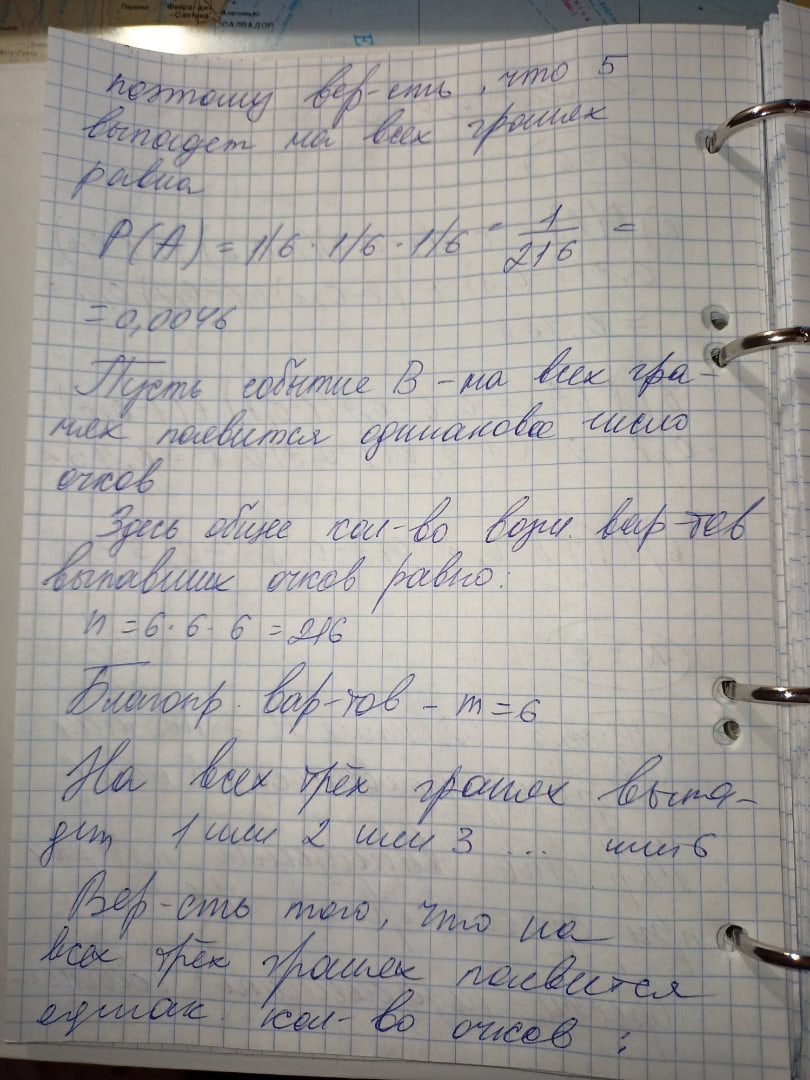 Фейра-ди-Сантана
САЛВАДОР
поэтому вер-сть, что 5
выпадет на всех гранях
равна
P(A) = 1/6 · 1/6 · 1/6 = 1/216 =
= 0,0046
Пусть событие B – на всех гра-
нях появится одинаковое число
очков
Здесь общее кол-во возм. вар-тов
выпавших очков равно:
n = 6 · 6 · 6 = 216
Благопр. вар-тов – m = 6
На всех трёх гранях выпа-
дет 1 или 2 или 3 ... или 6
Вер-сть того, что на
всех трёх гранях появится
однак. кол-во очков :